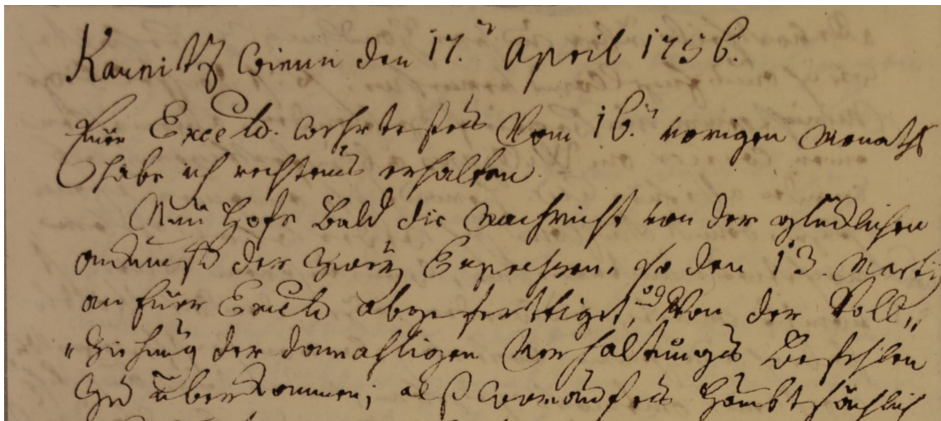 Kaunitz Wienn den 17.n April 1756.
Euer Excell. wehrtestes vom 16.n vorigen Monaths
habe ich rechtens erhalten.
Nun hofe bald die Nachricht von der glücklichen
ankunft der zwey Expressen, so den 13. Marty
an Euer Excell abgefertiget, und von der Voll„
„ziehung der damahligen Verhaltungs Befehlen
zu überkommen; alß worauf es haubtsächlich